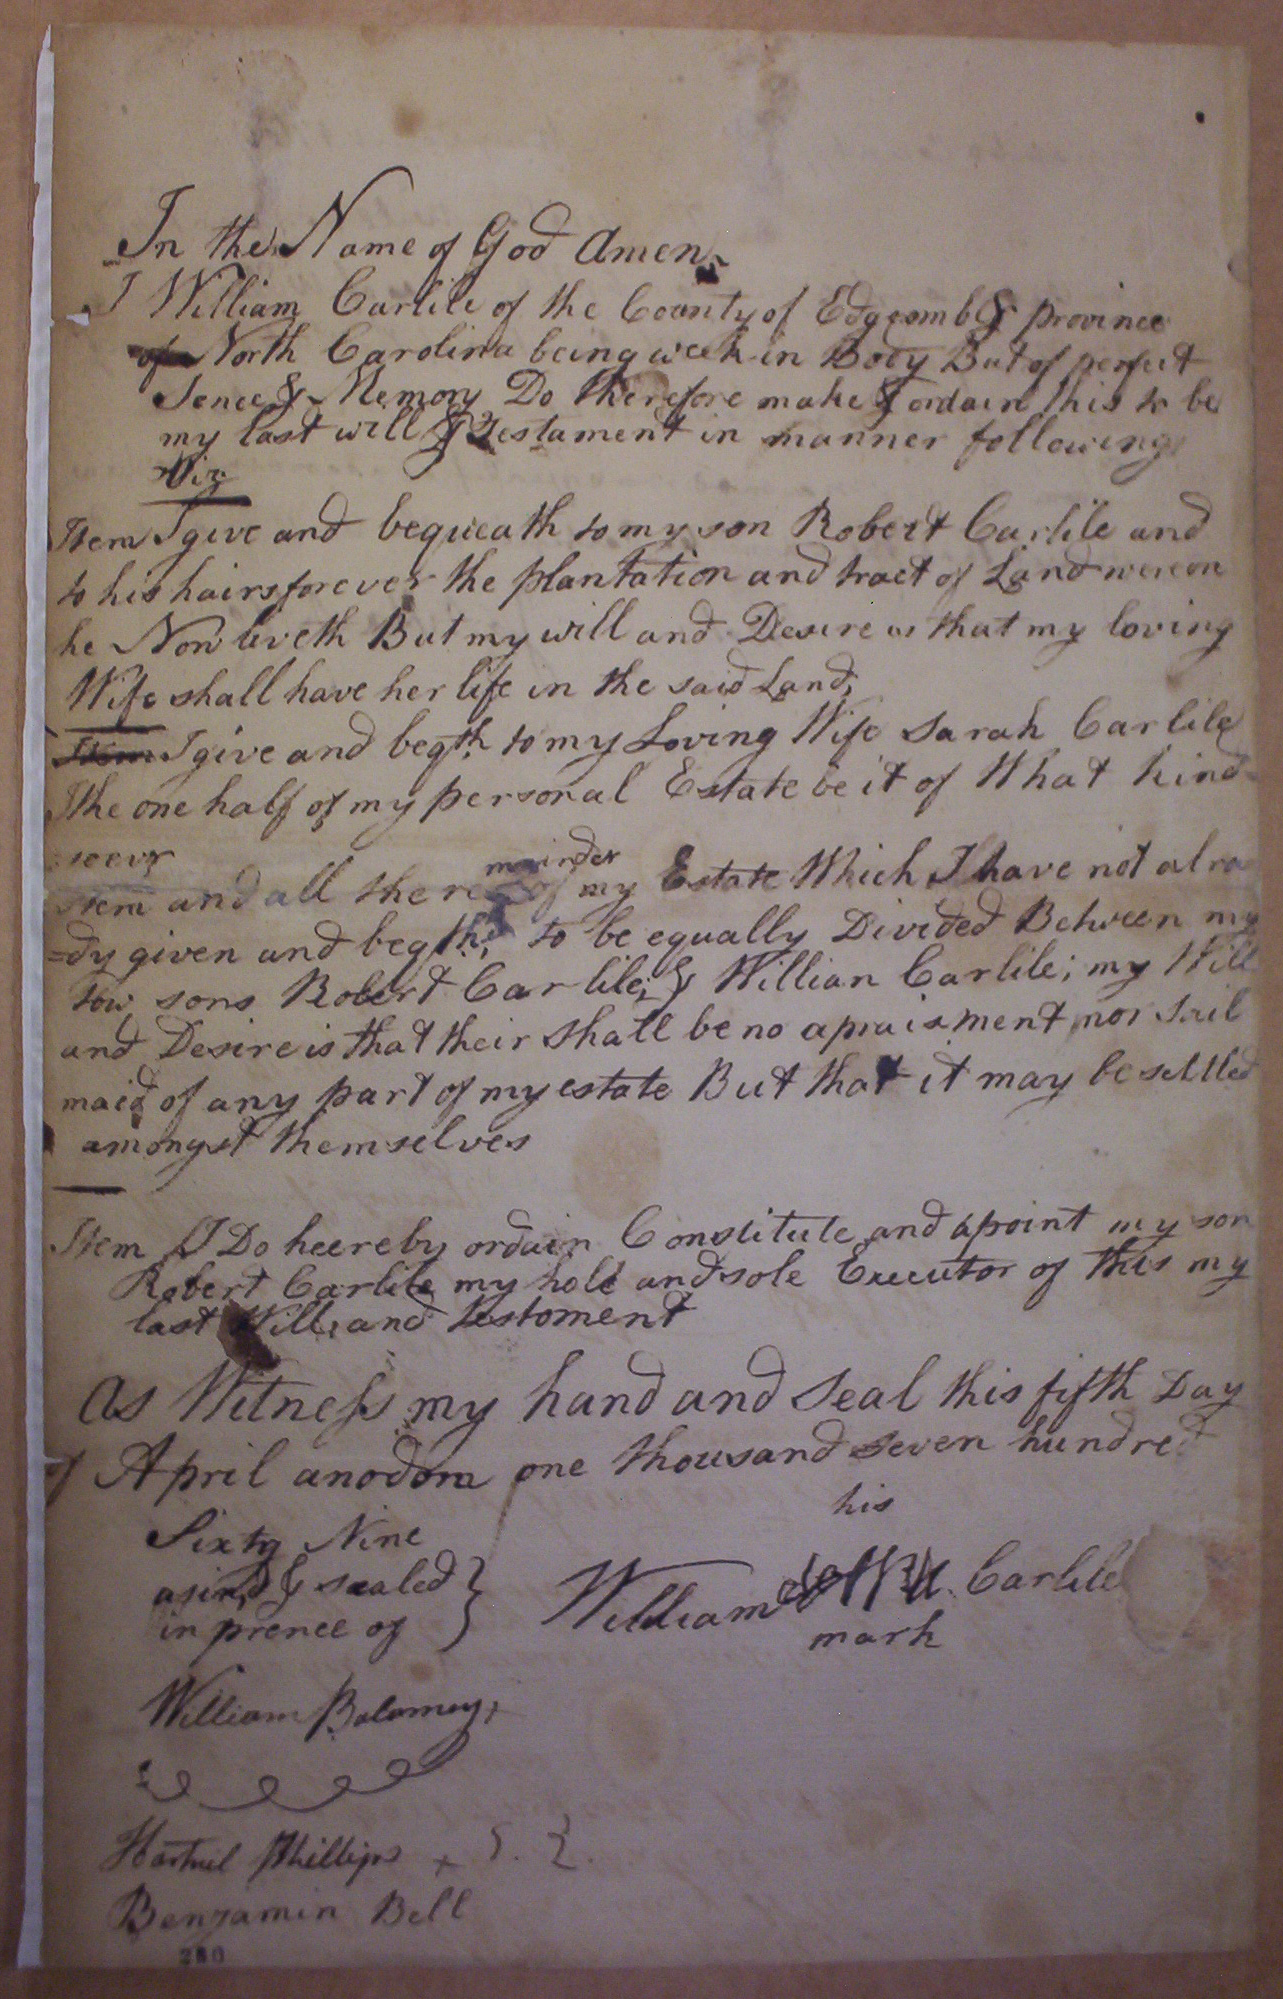 In the Name of God Amen
I William Carlile of the County of Edgcomb & province
of North Carolina being week in Body But of perfect
Sence & Memory Do Therefore make & ordain this to be
my last will & Testament in manner following
Viz
Item I give and bequeath to my son Robert Carlile and
to his hairs forever the plantation and tract of Land wereon
he Now liveth But my will and Desire is that my loving
Wife shall have her life in the said Land,
Item I give and beqth to my Loving Wife Sarah Carlile
the one half of my personal Estate be it of What kind
soevr
mainder
Item and all the re of my Estate Which I have not alrea
=dy given and beqth to be equally Divided Between my
tow sons Robert Carlile & Willian Carlile; my Will
and Desire is that their shall be no apraisment nor Sail
maid of any part of my estate But that it may be settled
amongst themselves
Item I Do heereby ordain Constitute and apoint my son
Robert Carlile my hole and sole Executor of this my
last Will and testoment
As Witness my hand and Seal this fifth Day
of April anodom one thousand seven hundred
Sixty Nine
his
asind & sealed
in prence of
William Carlile
mark
William Balamey
Hartwel Phillips +
Benjamin Bell
280